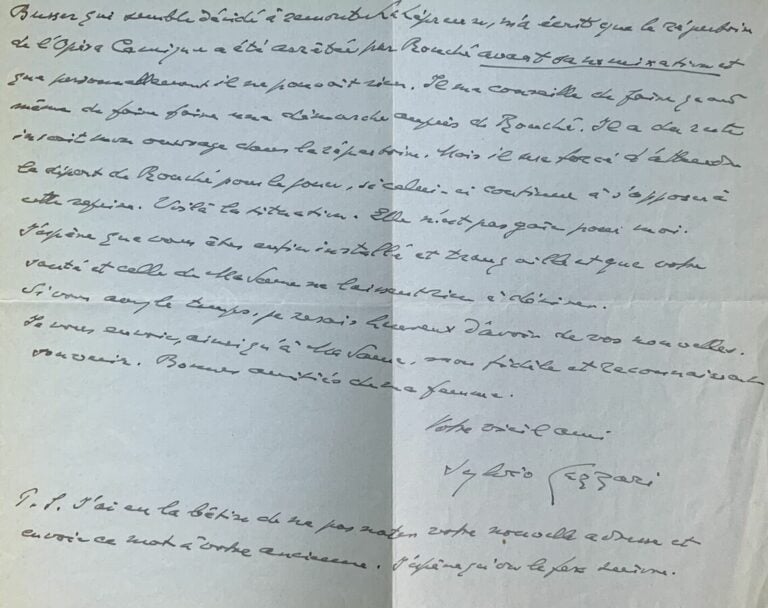 Busser qui semble décidé à remonter Le Lépreux, m'a écrit que le répertoire
de l'Opéra Comique a été arrêté par Rouché avant sa nomination et
que personnellement il ne pouvait rien. Il me conseille de faire quand
même de faire faire une démarche auprès de Rouché. Il a du reste
inscrit mon ouvrage dans le répertoire. Mais il me force d'attendre
le départ de Rouché pour le jouer, si celui-ci continue à s'opposer à
cette reprise. Voilà la situation. Elle n'est pas gaie pour moi.
J'espère que vous êtes enfin installé et tranquille et que votre
santé et celle de Madame ne laissent rien à désirer.
Si vous avez le temps, je serais heureux d'avoir de vos nouvelles.
Je vous envoie, ainsi qu'à Madame, mon fidèle et reconnaissant
souvenir. Bonnes amitiés de ma femme.
Votre vieil ami
Sylvio Lazzari
P. S. J'ai eu la bêtise de ne pas noter votre nouvelle adresse et
envoie ce mot à votre ancienne. J'espère qu'on le fera suivre.